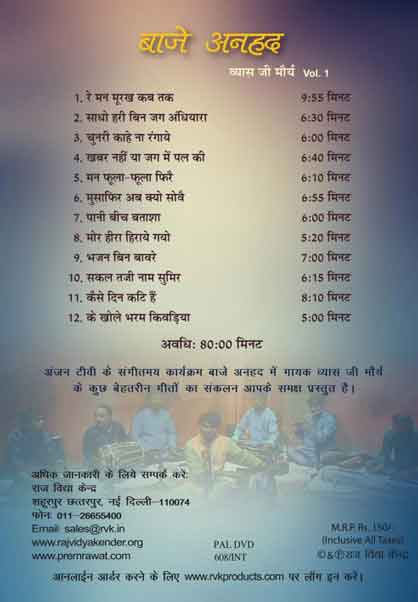 बाजे अनहद
व्यास जी मौर्य Vol. 1
1. रे मन मूरख कब तक 9:55 मिनट
2. साधो हरी बिन जग अंधियारा 6:30 मिनट
3. चुनरी काहे ना रंगाये 6:00 मिनट
4. खबर नहीं या जग में पल की 6:40 मिनट
5. मन फूला-फूला फिरै 6:10 मिनट
6. मुसाफिर अब क्यो सोवै 6:55 मिनट
7. पानी बीच बताशा 6:00 मिनट
8. मोर हीरा हिराये गयो 5:20 मिनट
9. भजन बिन बावरे 7:00 मिनट
10. सकल तजी नाम सुमिर 6:15 मिनट
11. कैसे दिन कटि हैं 8:10 मिनट
12. के खोले भरम किवड़िया 5:00 मिनट
अवधि: 80:00 मिनट
अंजन टीवी के संगीतमय कार्यक्रम बाजे अनहद में गायक व्यास जी मौर्य
के कुछ बेहतरीन गीतों का संकलन आपके समक्ष प्रस्तुत है।
अधिक जानकारी के लिये सम्पर्क करें:
राज विद्या केन्द्र
शहूरपुर छत्तरपुर, नई दिल्ली-110074
फोनः 011-26655400
Email: sales@rvk.in
www.rajvidyakender.org
www.premrawat.com
PAL DVD
608/INT
M.R.P. Rs. 150/-
(Inclusive All Taxes)
©&℗राज विद्या केन्द्र
आनलाईन आर्डर करने के लिए www.rvkproducts.com पर लॉग इन करें।